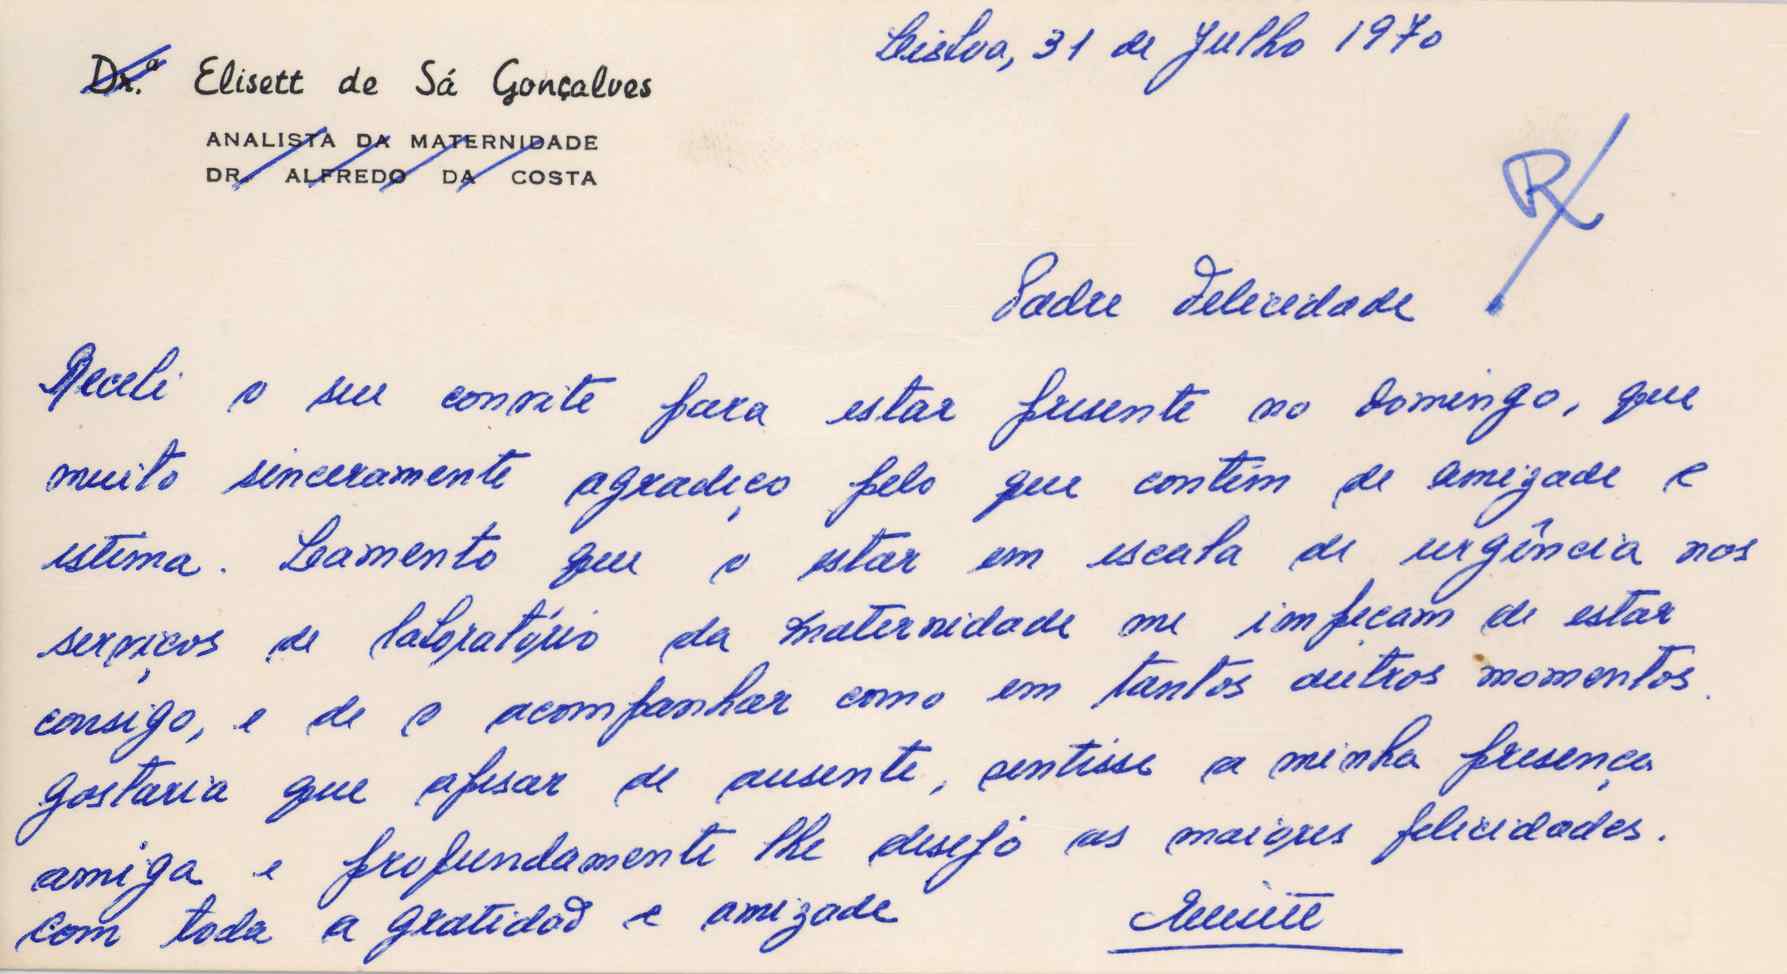 Lisboa, 31 de Julho 1970
Dr.ª Elisett de Sá Gonçalves
ANALISTA DA MATERNIDADE
DR. ALFREDO DA COSTA
R
Padre Felicidade
Recebi o seu convite para estar presente no domingo, que
muito sinceramente agradeço pelo que contém de amizade e
estima. Lamento que o estar em escala de urgência nos
serviços de laboratório da Maternidade me impeçam de estar
consigo, e de o acompanhar como em tantos outros momentos.
Gostaria que apesar de ausente, sentisse a minha presença
amiga e profundamente lhe desejo as maiores felicidades.
Com toda a gratidão e amizade
Elisett